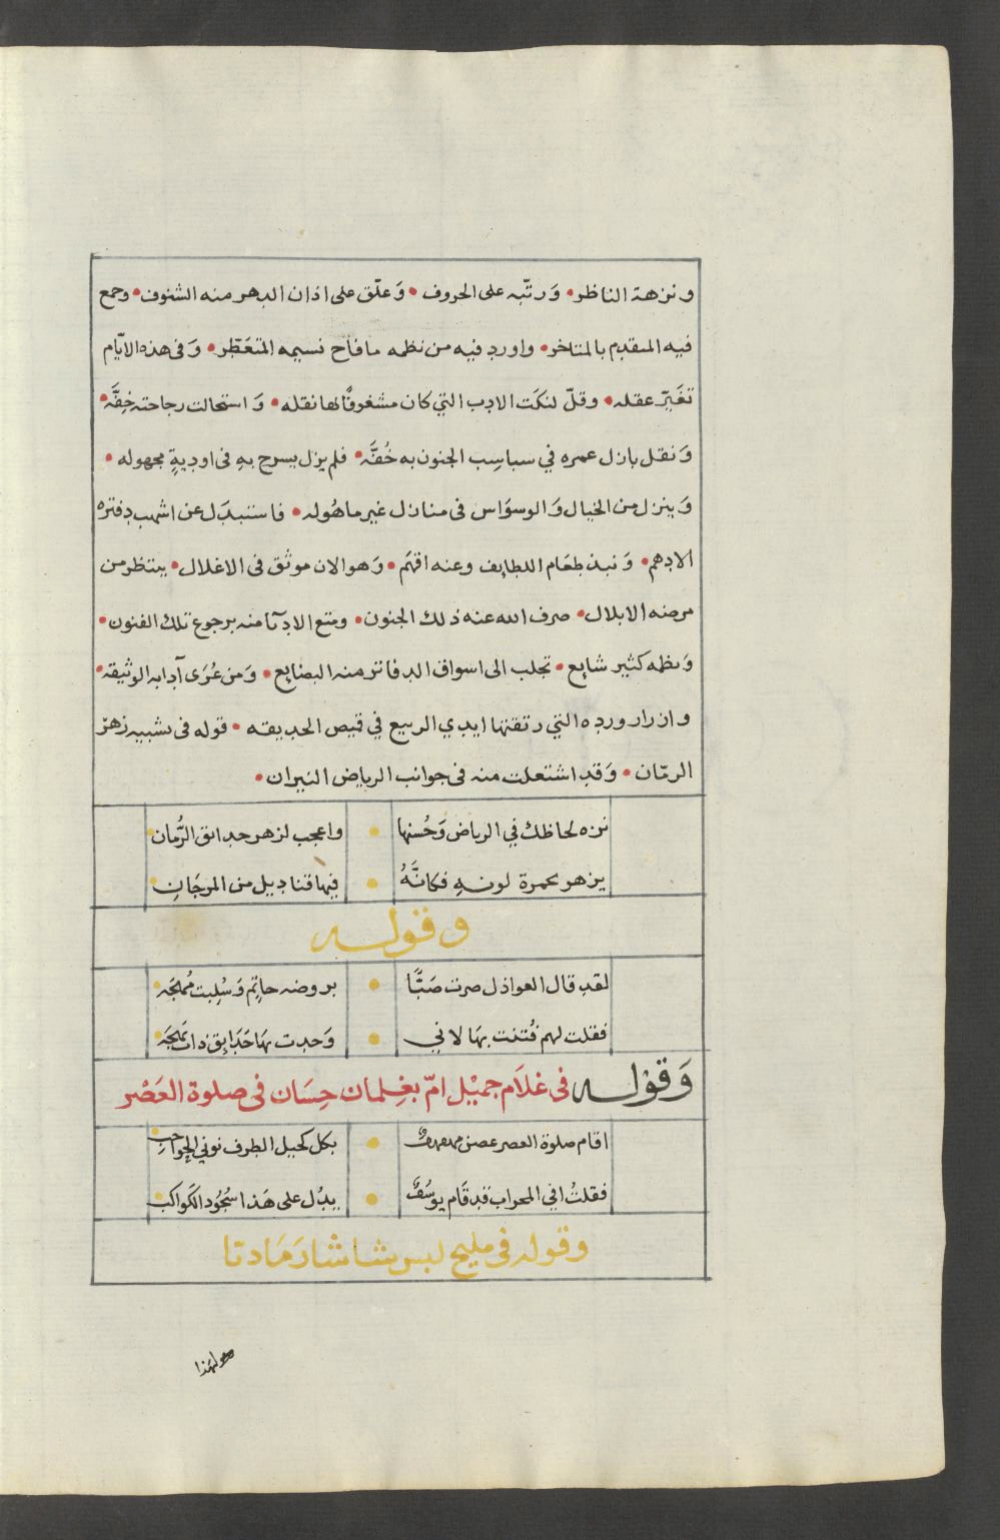 ونزهة الناظر • وَرتّبه على الحروف • وَعلّق على اذان الدهر منه الشنوف • وجمع
فيه المتقدم بالمتاخر • واورد فيه من نظمه ما فاح نسيمه المتعَطّر • وَفى هذه الايّام
تغَيّر عقله • وقلّ لنكَت الادب التي كان مشغوفًا لها نقله • وَاستحالت رجاحته خِفَّه •
وَنقل بازل عمره في سباسِب الجنون به خُفَّه • فلم يزل يسرح بهِ فى اوديةٍ مجهوله •
وَينزل من الخيال وَالوسوَاس فى منازل غير ماهُوله • فاستبدَل عن اشهب دفتره
الادهم • وَنبذ طعَام اللطايف وعنه اقهَم • وَهو الان موثَق فى الاغلال • ينتظر من
مرضه الابلال • صرف الله عنه ذلك الجنون • ومتع الادبَآ منه برجوع تلك الفنون •
وَنظمه كثير شايع • تجلب الى اسواق الدفاتر منه البضايع • وَمن عُرَى آدابه الوثيقه •
وازرار ورده التي رتقتها ايدي الربيع في قميص الحديقه • قوله فى تشبيه زهر
الرمّان • وَقد اشتعلت منه فى جوانب الرياض النيران •
نزه لحاظك في الرياض وَحُسنها • واعجب لزهر حدائق الرُّمان
يزهر بحمرة لونهِ فكانَّهُ • فيهَا قناديل من المرجَانِ
وقوله
لقد قال العواذل صرت صَبًّا • بروضه حاتِم وَسُلِبت مُهجَه
فقلت لهم فُتنت بهَا لانى • وَجدت بهَا حَدَايِق ذات بَهجَه
وَقوْله فى غلَام جميْل امّ بغِلمان حِسَان فى صلوة العَصْر
اقام صلوة العصر غصن مهفهفٌ • بكل كحيل الطرف نوني الحِوَاجبِ
فقلتُ افي المحراب قد قَام يوسُفٌ • يدُل على هَذا سُجُود الكَواكب
وقوله فى مليح لبس شاشا رَمَاديّا
مولهذا